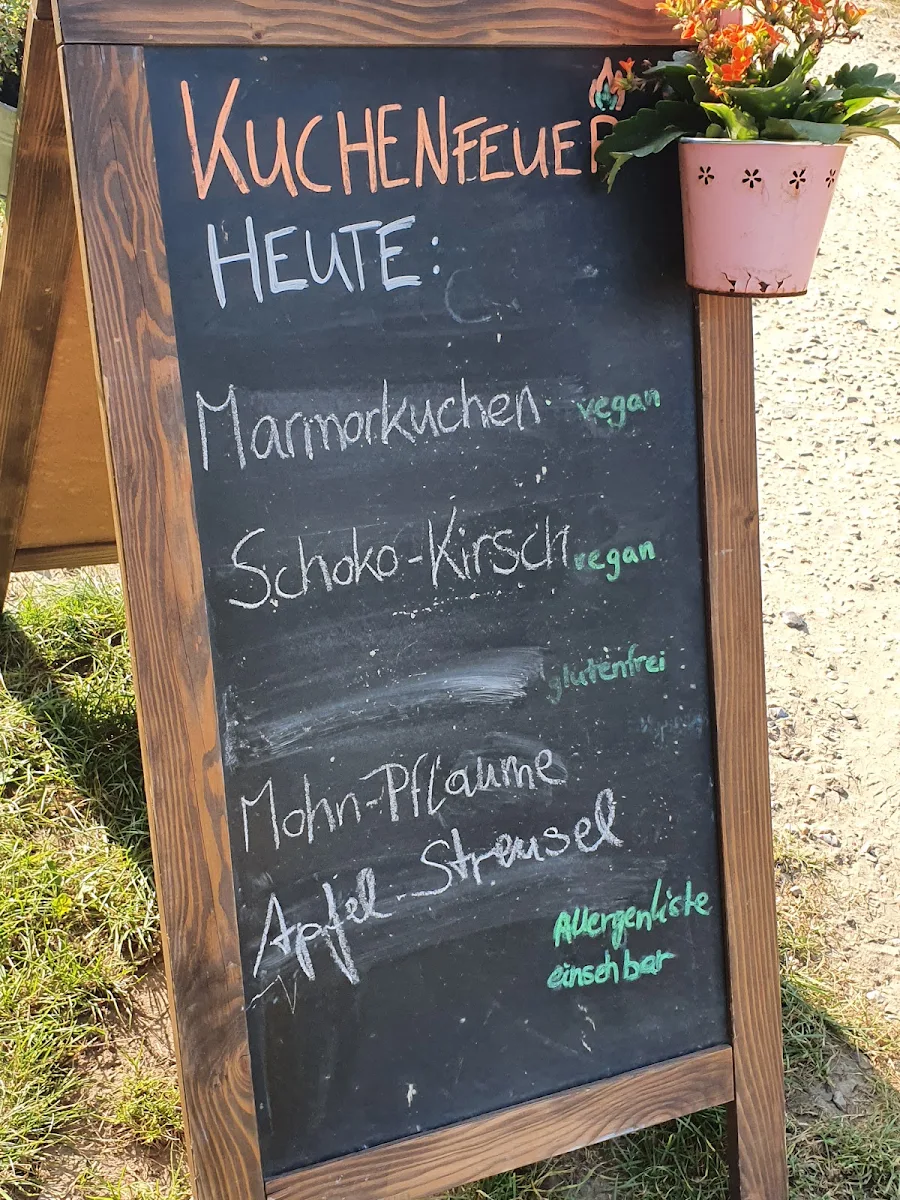 KUCHENFEUER
HEUTE:
Marmorkuchen vegan
Schoko-Kirsch vegan
glutenfrei
Mohn-Pflaume
Apfel-Streusel
Allergenliste
einsehbar